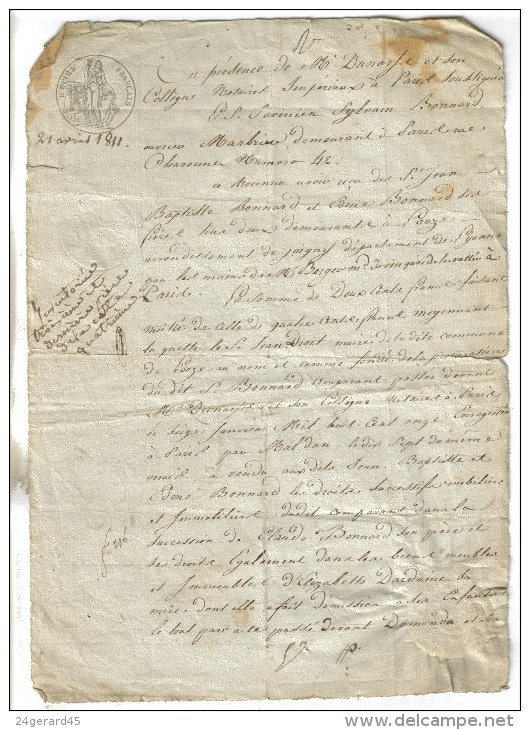 EMPIRE FRANÇAIS
21 avril 1811.
En présence de Me Dunarys et son
Collègue Notaires Impériaux à Paris soussignés
Sr. Savinien Sylvain Bonnard
ouvrier Marbrier demeurant à Paris rue
Charonne Numero 42.
a Reconnu avoir reçu des Srs Jean
Baptiste Bonnard et Edme Bonnard ses
frères tous deux demeurants à
arrondissement de Joigny département de l'Yonne
par les mains de Mr Berger md de vin
Paris
la somme de Deux Cents francs faisant
moitié de celle de quatre cents francs moyennant
laquelle le Sr Jean Droit maire de la dite commune
de au nom et comme fondé de la procuration
du dit Sr Bonnard comparant passée devant
Me et son Collègue Notaires à Paris
le seize Janvier Mil huit Cent onze Enregistré
à Paris par le dix Sept du même
mois a vendu aux dits Jean Baptiste et
Edme Bonnard les droits Successifs mobiliers
et Immobiliers dudit comparant dans la
Succession de Claude Bonnard son père et
ses droits Egalement dans les biens meubles
et Immeubles d'Elizabeth Dardanne sa
mère dont elle a fait démission à ses Enfants
le tout par acte passé devant et son
et
dernière pièce
de la cotte
quatrième
24gerard45
www.delcampe.net